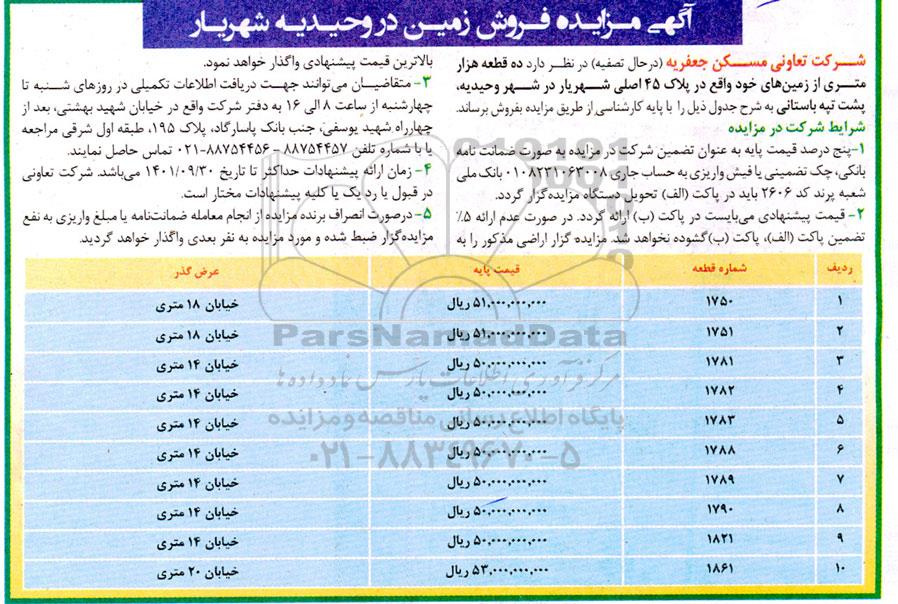 آگهی مزایده فروش زمین در وحیدیه شهریار
شرکت تعاونی مسکن جعفریه (درحال تصفیه) در نظر دارد ده قطعه هزار
متری از زمین‌های خود واقع در پلاک ۴۵ اصلی شهریار در شهر وحیدیه،
پشت تپه باستانی به شرح جدول ذیل را با پایه کارشناسی از طریق مزایده بفروش برساند.
شرایط شرکت در مزایده
۱-پنج درصد قیمت پایه به عنوان تضمین شرکت در مزایده به صورت ضمانت نامه
بانکی، چک تضمینی یا فیش واریزی به حساب جاری ۰۱۰۸۲۳۱۰۶۳۰۰۸ بانک ملی
شعبه پرند کد ۲۶۰۶ باید در پاکت (الف) تحویل دستگاه مزایده گزار گردد.
۲- قیمت پیشنهادی می‌بایست در پاکت (ب) ارائه گردد. در صورت عدم ارائه ۵٪
تضمین پاکت (الف)، پاکت (ب) گشوده نخواهد شد. مزایده گزار اراضی مذکور را به
بالاترین قیمت پیشنهادی واگذار خواهد نمود.
۳- متقاضیان می‌توانند جهت دریافت اطلاعات تکمیلی در روزهای شنبه تا
چهارشنبه از ساعت ۸ الی ۱۶ به دفتر شرکت واقع در خیابان شهید بهشتی، بعد از
چهارراه شهید یوسفی، جنب بانک پاسارگاد، پلاک ۱۹۵، طبقه اول شرقی مراجعه
یا با شماره تلفن ۸۸۷۵۴۴۵۷ - ۸۸۷۵۴۴۵۶-۰۲۱ تماس حاصل نمایند.
۴- زمان ارائه پیشنهادات حداکثر تا تاریخ ۱۴۰۱/۰۹/۳۰ می‌باشد. شرکت تعاونی
در قبول یا رد یک یا کلیه پیشنهادات مختار است.
۵- درصورت انصراف برنده مزایده از انجام معامله ضمانت‌نامه یا مبلغ واریزی به نفع
مزایده‌گزار ضبط شده و مورد مزایده به نفر بعدی واگذار خواهد گردید.
ردیف شماره قطعه قیمت پایه عرض گذر
۱ ۱۷۵۰ ۵۱,۰۰۰,۰۰۰,۰۰۰ ریال خیابان ۱۸ متری
۲ ۱۷۵۱ ۵۱,۰۰۰,۰۰۰,۰۰۰ ریال خیابان ۱۸ متری
۳ ۱۷۸۱ ۵۰,۰۰۰,۰۰۰,۰۰۰ ریال خیابان ۱۴ متری
۴ ۱۷۸۲ ۵۰,۰۰۰,۰۰۰,۰۰۰ ریال خیابان ۱۴ متری
۵ ۱۷۸۳ ۵۰,۰۰۰,۰۰۰,۰۰۰ ریال خیابان ۱۴ متری
۶ ۱۷۸۸ ۵۰,۰۰۰,۰۰۰,۰۰۰ ریال خیابان ۱۴ متری
۷ ۱۷۸۹ ۵۰,۰۰۰,۰۰۰,۰۰۰ ریال خیابان ۱۴ متری
۸ ۱۷۹۰ ۵۰,۰۰۰,۰۰۰,۰۰۰ ریال خیابان ۱۴ متری
۹ ۱۸۲۱ ۵۰,۰۰۰,۰۰۰,۰۰۰ ریال خیابان ۱۴ متری
۱۰ ۱۸۶۱ ۵۳,۰۰۰,۰۰۰,۰۰۰ ریال خیابان ۲۰ متری
ParsNamadData
مرکز فرآوری اطلاعات پارس نماد داده ها
پایگاه اطلاع رسانی مناقصه و مزایده
۰۲۱-۸۸۳۴۹۶۷۰-۵